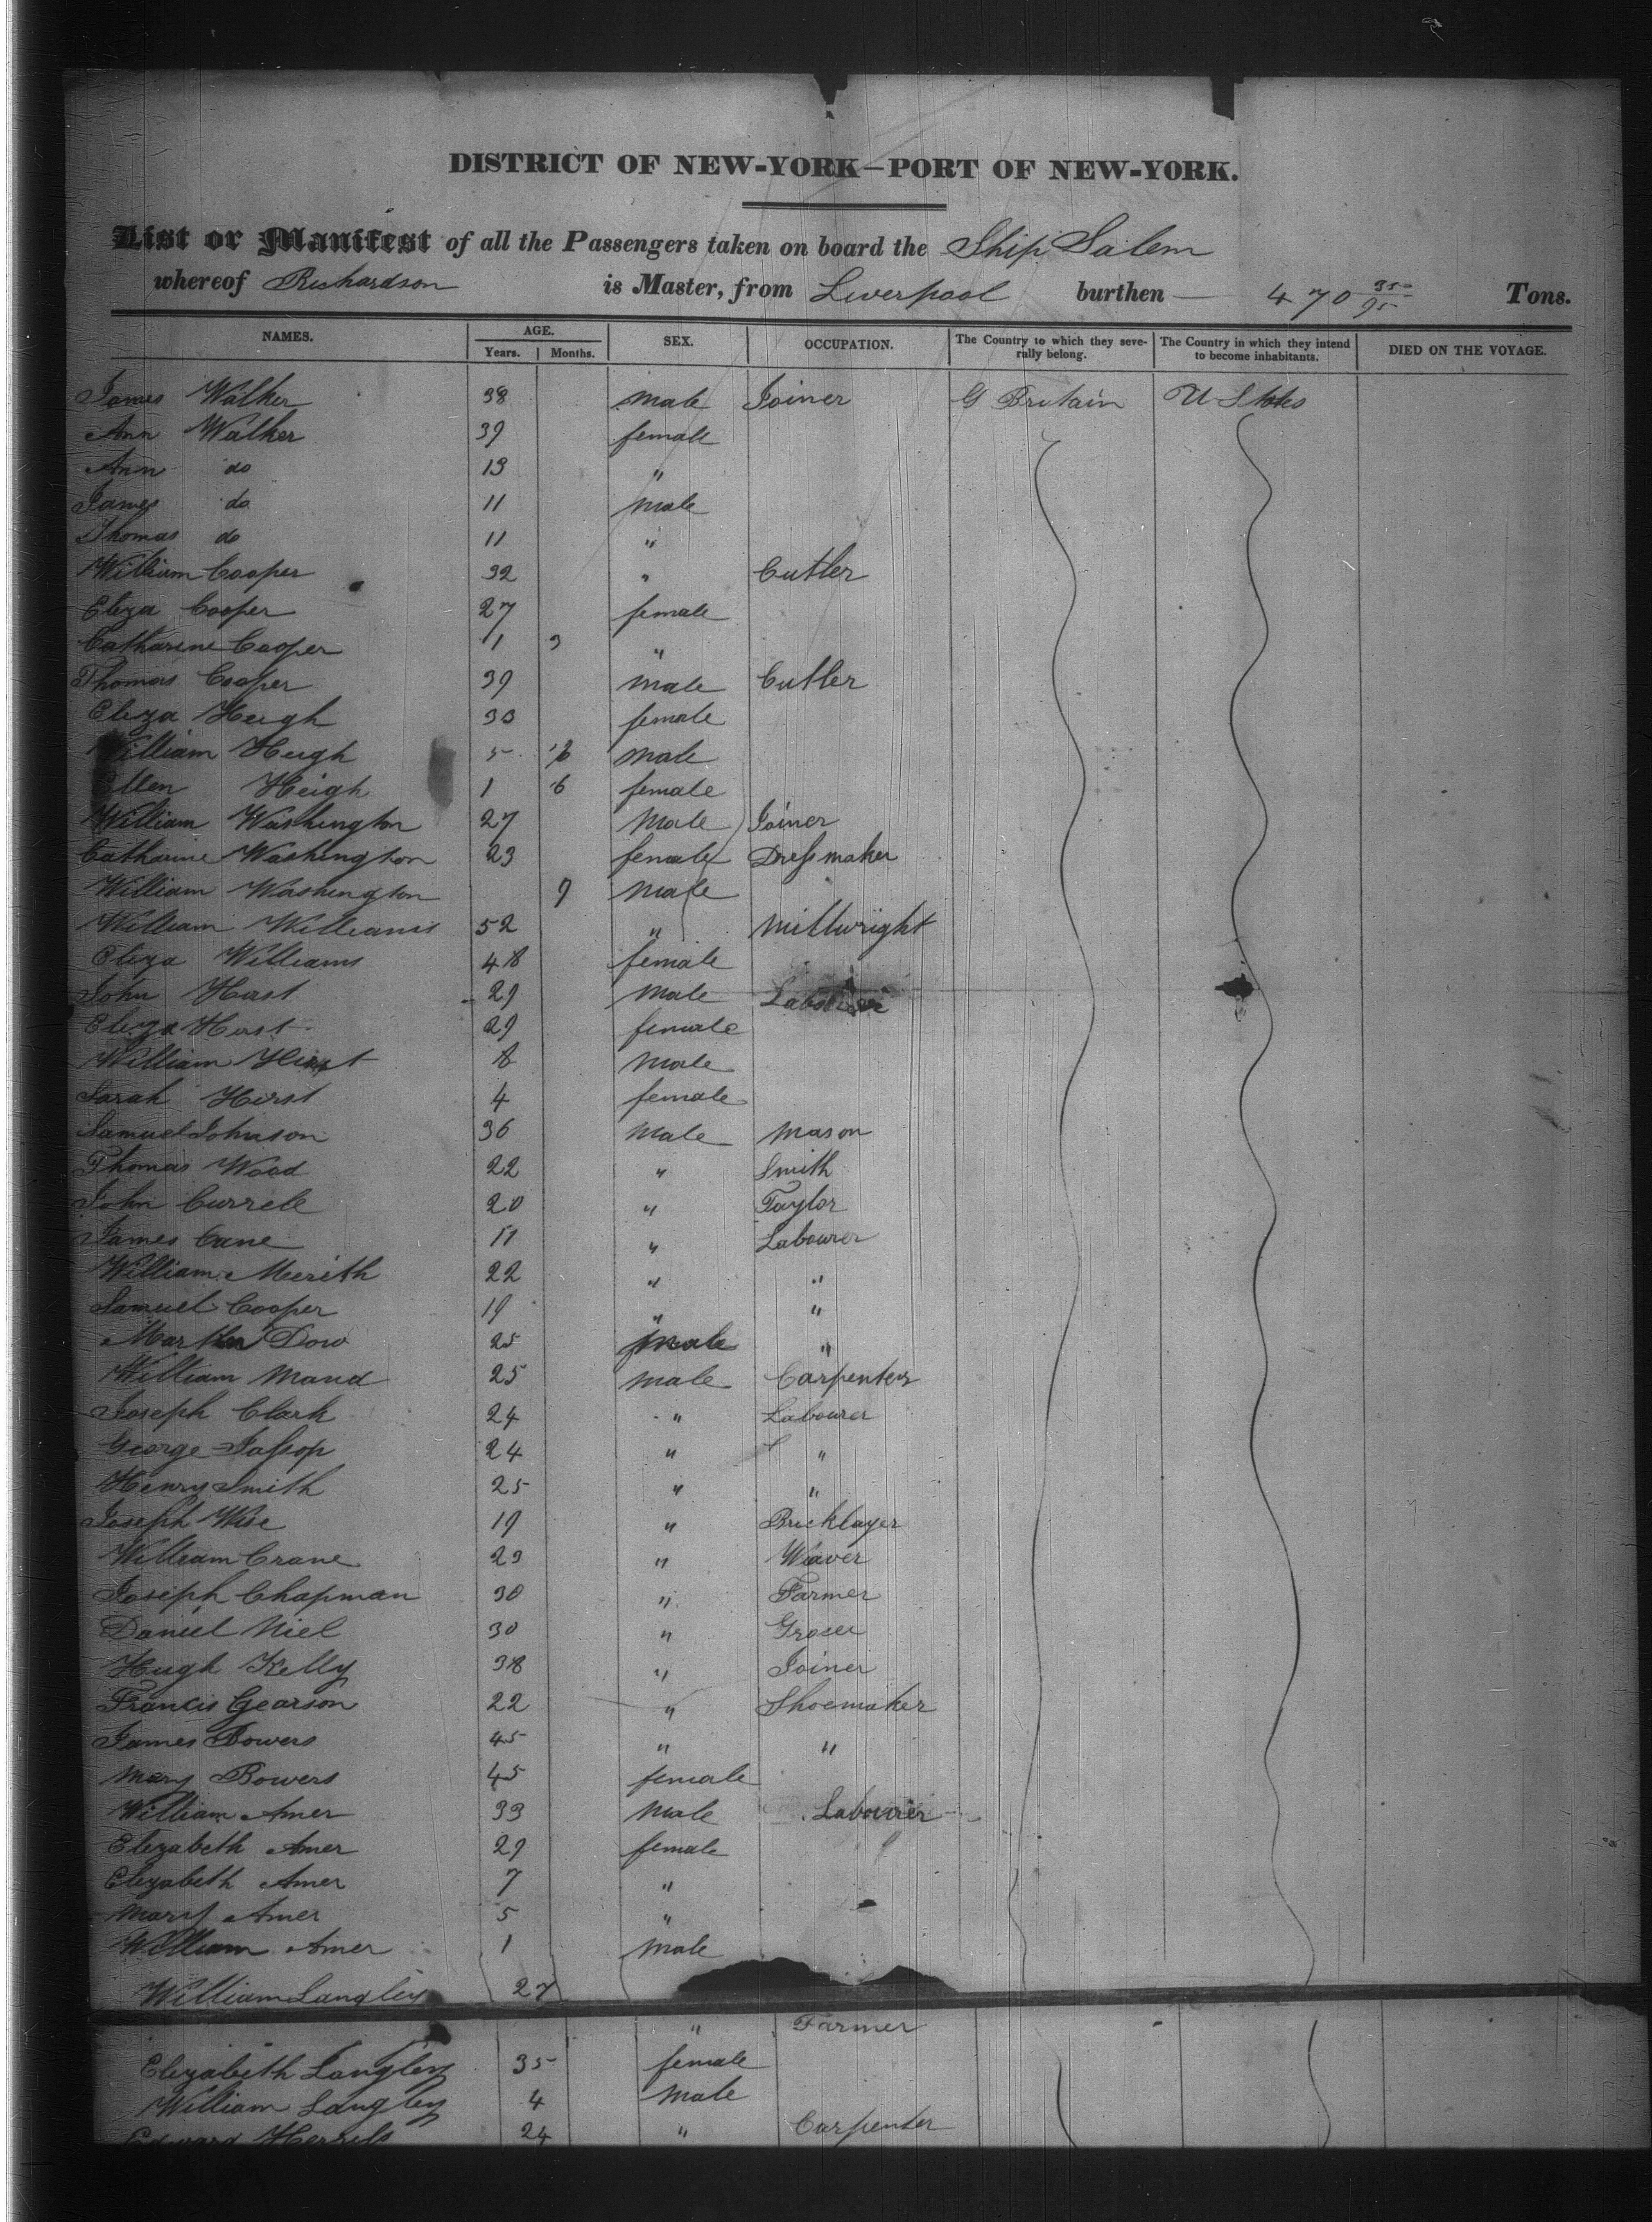 DISTRICT OF NEW-YORK—PORT OF NEW-YORK.
List or Manifest of all the Passengers taken on board the Ship Salem
whereof Richardson is Master, from Liverpool burthen — 470 35/95 Tons.
NAMES. AGE. Years. Months. SEX. OCCUPATION. The Country to which they severally belong. The Country in which they intend to become inhabitants. DIED ON THE VOYAGE.
James Walker 38 male Joiner G Britain U States
Ann Walker 39 female
Ann do 13 "
James do 11 male
Thomas do 11 "
William Cooper 32 " Cutler
Eliza Cooper 27 female
Catharine Cooper 1 3 "
Thomas Cooper 39 male Cutler
Eliza Heigh 30 female
William Heigh 5 male
Ellen Heigh 1 6 female
William Washington 27 Male Joiner
Catharine Washington 23 female Dressmaker
William Washington 9 Male
William Williams 52 " Millwright
Eliza Williams 48 female
John Hast 29 Male Labourer
Eliza Hast 29 female
William 8 Male
Sarah Hirst 4 female
Samuel Johnson 36 Male Mason
Thomas Wood 22 " Smith
John Currell 20 " Taylor
James Cane " Labourer
William Merith 22 " "
Samuel Cooper 19 " "
Dow 25 male "
William Mand 25 male Carpenter
Joseph Clark 24 " Labourer
George Jassop 24 " "
Henry Smith 25 " "
Joseph Wise 19 " Bricklayer
William Crane 23 " Weaver
Joseph Chapman 30 " Farmer
Daniel Niel 30 " Grocer
Hugh Kelly 38 " Joiner
Francis Gearson 22 " Shoemaker
James Bowers 45 " "
Mary Bowers 45 female
William Amer 33 Male Labourer
Elizabeth Amer 29 female
Elizabeth Amer 7 "
Mary Amer 5 "
William Amer 1 Male
William Langley 27
" Farmer
Elizabeth Langley 35 female
William Langley 4 Male
Edward 24 " Carpenter